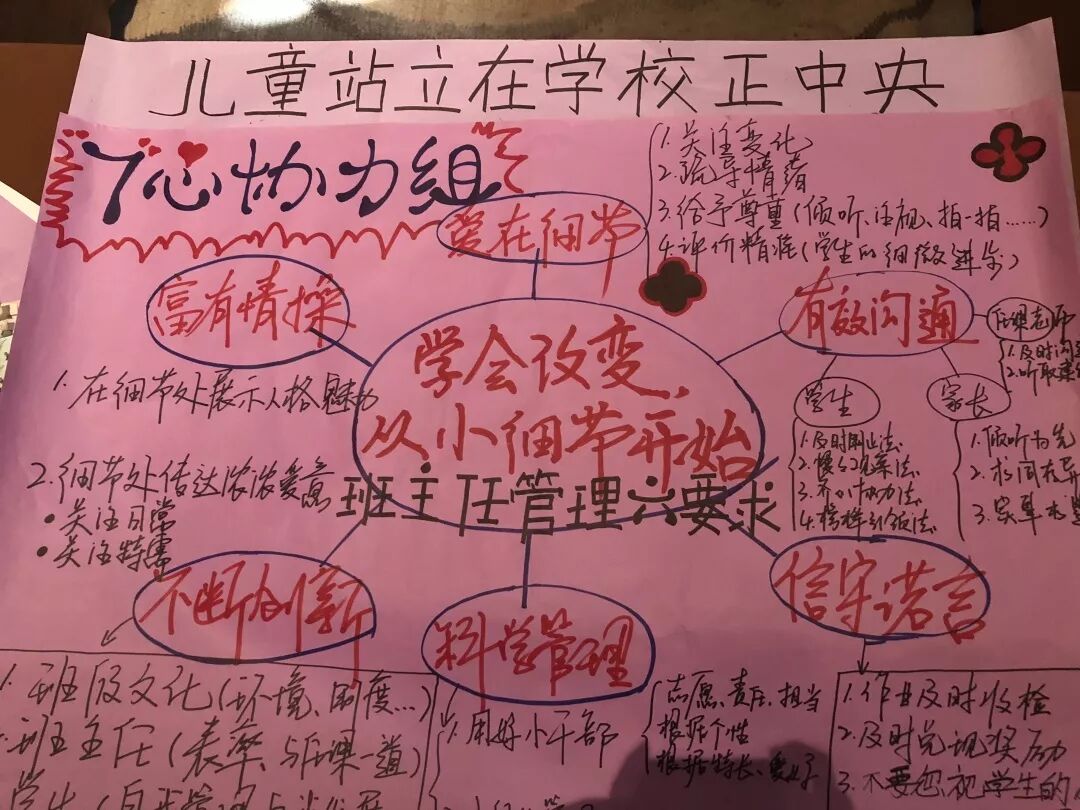 儿童站立在学校正中央
7心协力组
爱在细节
1.关注变化
2.疏导情绪
3.给予尊重(倾听、注视、拍一拍……)
4.评价精准(学生的细微进步)
富有情操
1.在细节处展示人格魅力
2.细节处传达浓浓爱意
●关注日常
●关注特需
学会改变,
从小细节开始
班主任管理六要求
有效沟通
任课老师
1.及时沟
2.听取
学生
1.及时制止法
2.
3.齐心协力法
4.榜样引领法
家长
1.倾听为先
2.求同存异
3.
信守诺言
1.作业及时收检
2.及时兑现奖励
3.不要忽视学生的
科学管理
1.用好小干部
志愿、责任、担当
根据个性
根据特长、爱好
不断创新
1.班级文化(环境、制度…)
2.班主任(表率、与任课一道)
学生(自我管理与